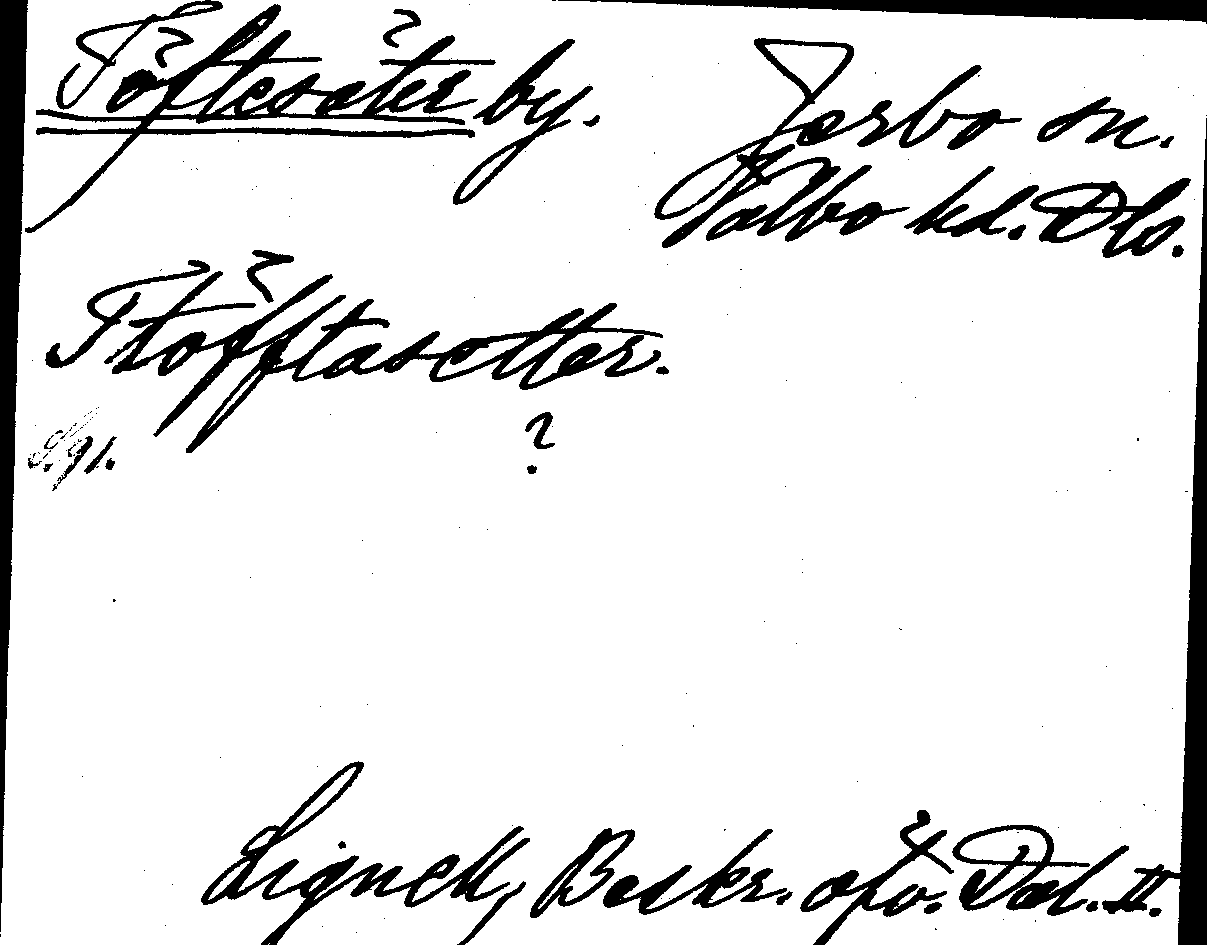 Töftesäter by. Jerbo sn.
Valbo hd. Dls.
Ttöfftasetter.
S. 91. ?
Lignell, Beskr. öfv. Dal. II.